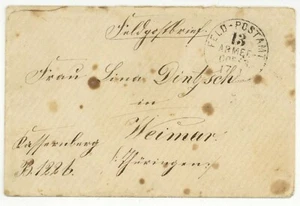 Feldpostbrief.
FELD-POSTAMT
13
ARMEE
CORPS
Frau Lina Dintsch
in
Weimar
Thüringen
Kassernberg
B. 122 b.